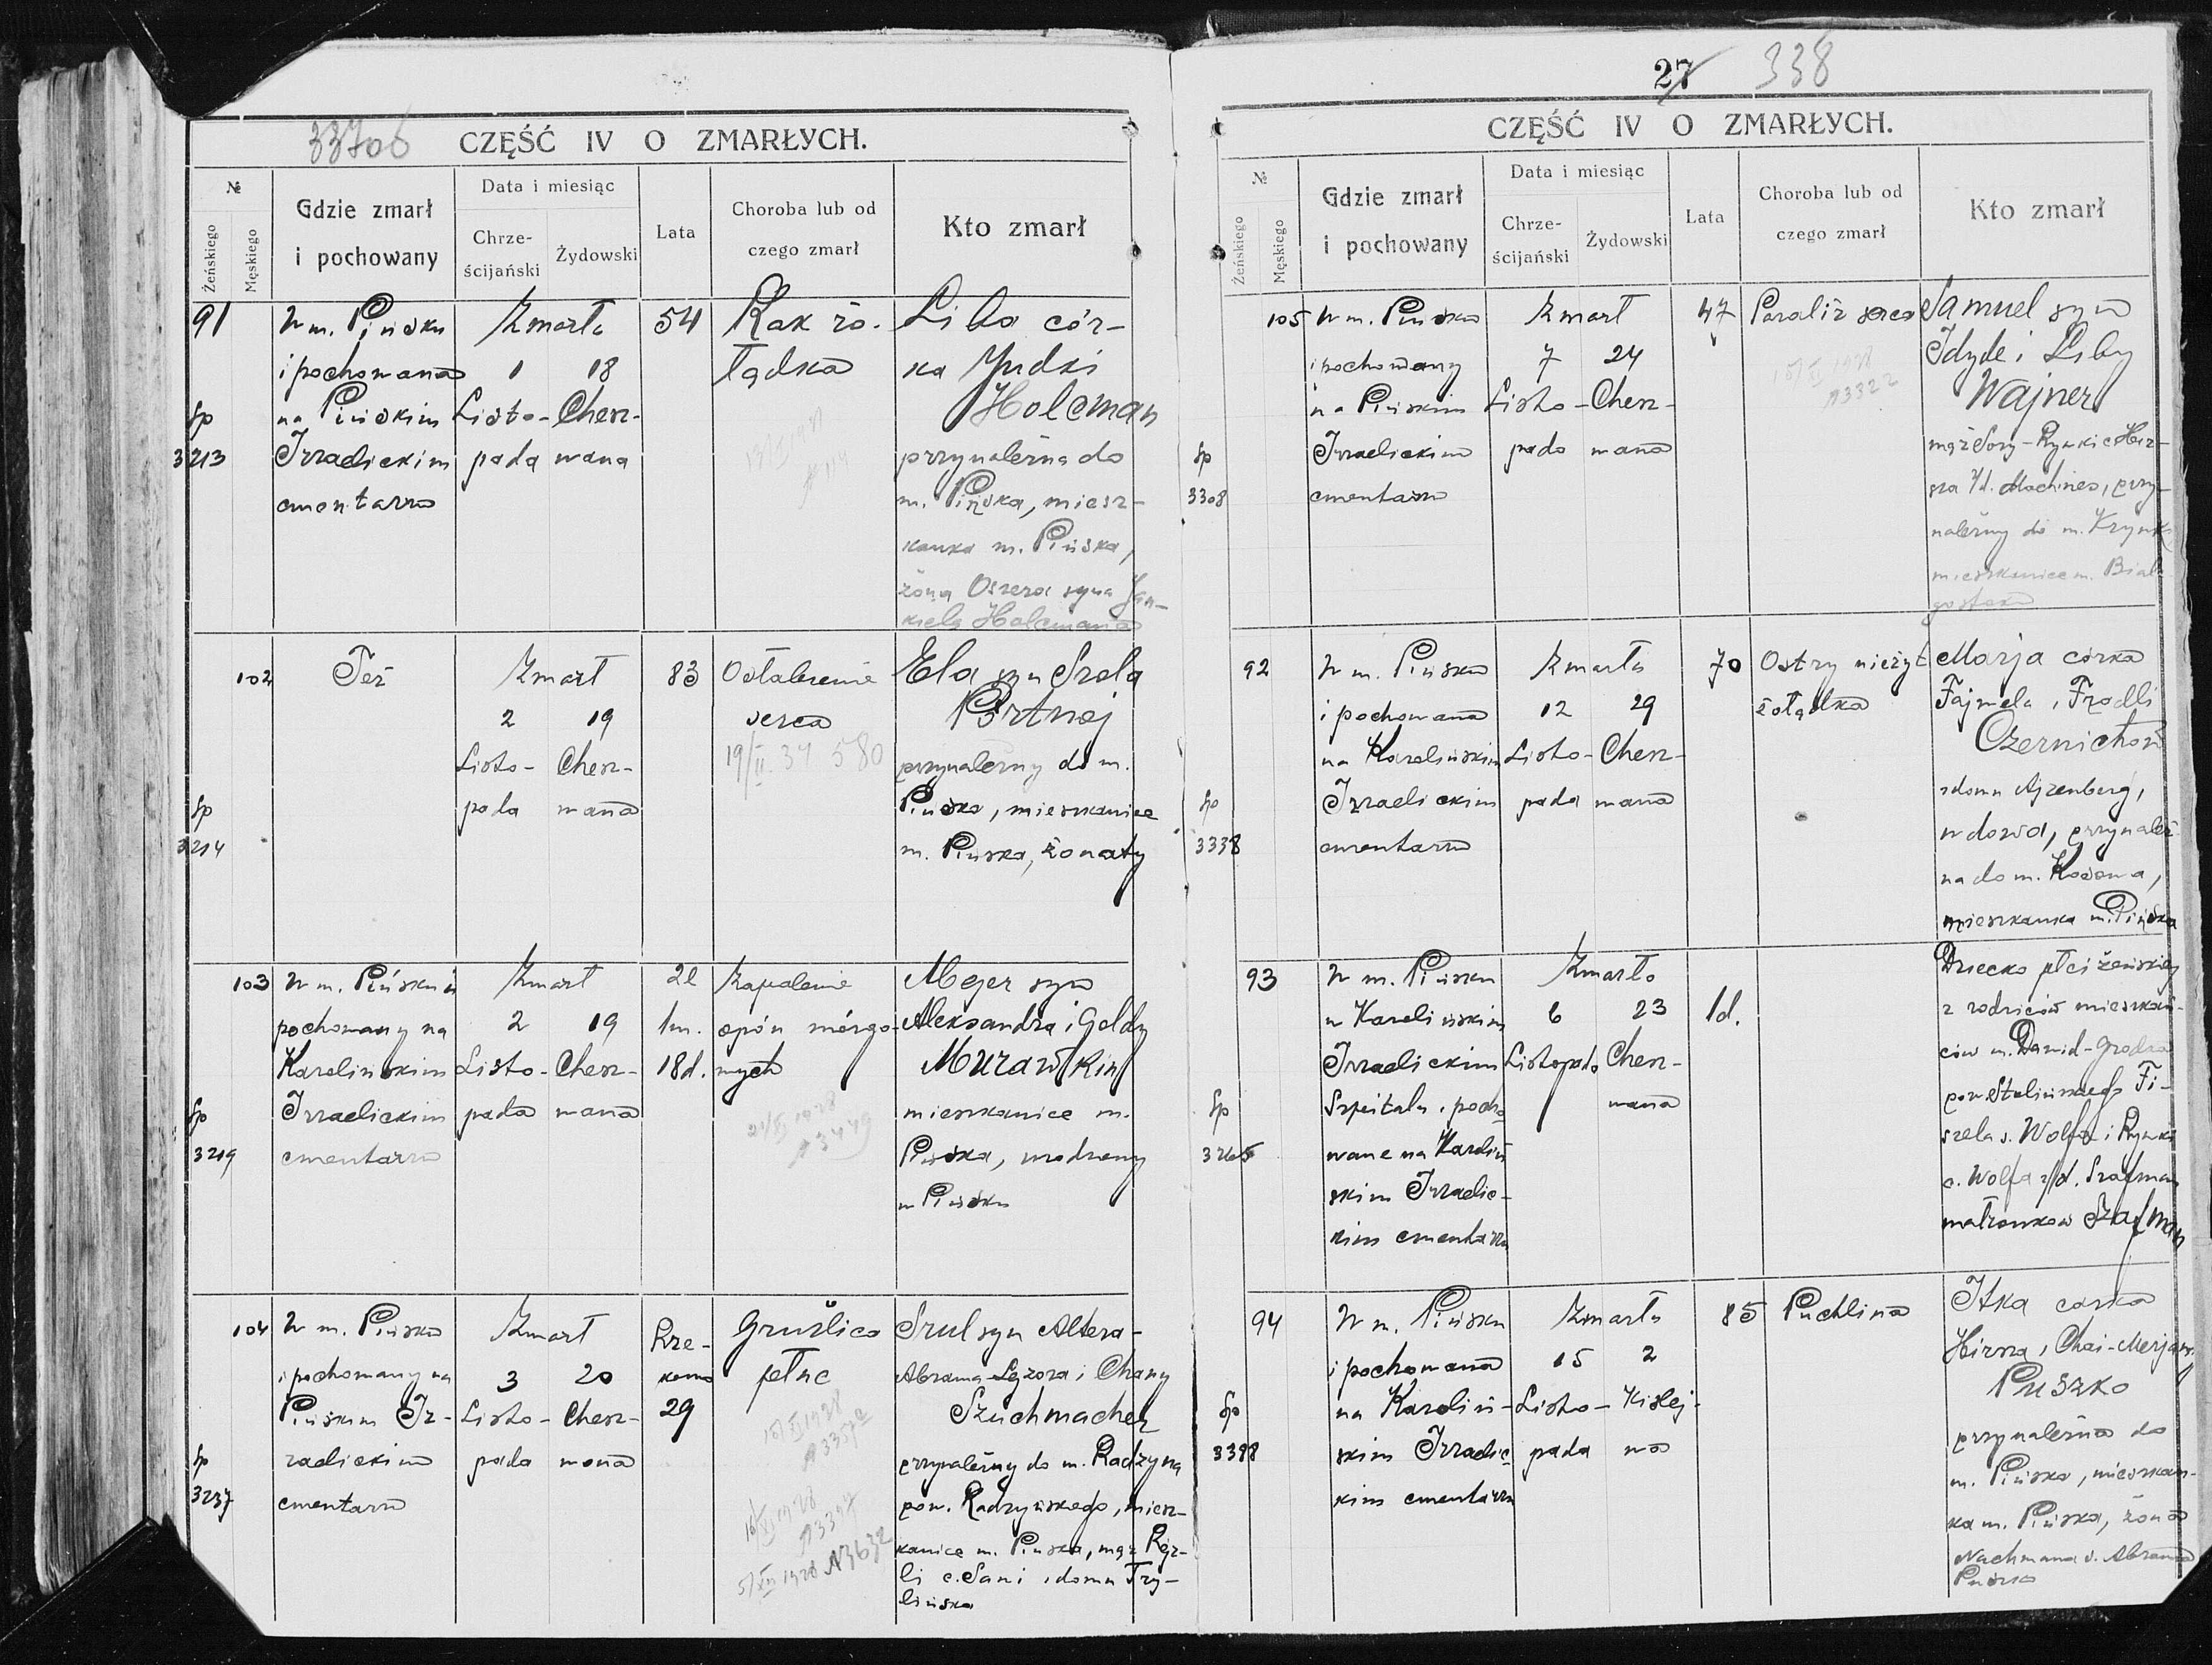 33706
CZĘŚĆ IV O ZMARŁYCH.
№
Żeńskiego
Męskiego
Gdzie zmarł
i pochowany
Data i miesiąc
Chrze-
ścijański
Żydowski
Lata
Choroba lub od
czego zmarł
Kto zmarł
91
Sp
3213
W m. Pińsku
i pochowana
na Pińskim
Izraelickim
cmentarzu
Zmarła
1 18
Listo- Chesz-
pada wana
54
Rak żo-
łądka
Liba cór-
ka Judki
Holcman
przynależna do
m. Pińska, miesz-
kanka m. Pińska,
żona Oszera syna Jan-
kiela Holcmana
102
Sp
3214
Też
Zmarł
2 19
Listo- Chesz-
pada wana
83
Osłabienie
serca
19/II. 37 580
Ela syn Srola
Portnoj
przynależny do m.
Pińska, mieszkaniec
m. Pińska, żonaty
103
Sp
3219
W m. Pińsku i
pochowany na
Karolińskim
Izraelickim
cmentarzu
Zmarł
2 19
Listo- Chesz-
pada wana
2l
1m.
18d.
Zapalenie
opón mózgo-
wych
21/XI 1928
3449
Mejer syn
Aleksandra i Goldy
Murawkin
mieszkaniec m.
Pińska, urodzony
w Pińsku
104
Sp
3237
W m. Pińsku
i pochowany na
Pińskim Iz-
raelickim
cmentarzu
Zmarł
3 20
Listo- Chesz-
pada wana
Rze-
komo
29
Gruźlica
płuc
5/XII 1928 N3632
Srul syn Altera-
Abrama-Lejzora i Chany
Szuchmacher
przynależny do m. Radzyna
pow. Radzyńskiego, miesz-
kaniec m. Pińska, mąż Rejz-
li c. Sani z domu Try-
lińska
27 338
CZĘŚĆ IV O ZMARŁYCH.
№
Żeńskiego
Męskiego
Gdzie zmarł
i pochowany
Data i miesiąc
Chrze-
ścijański
Żydowski
Lata
Choroba lub od
czego zmarł
Kto zmarł
105
Sp
3308
W m. Pińsku
i pochowany
na Pińskim
Izraelickim
cmentarzu
Zmarł
7 24
Listo- Chesz-
pada wana
47
Paraliż serca
3322
Samuel syn
Idyde i Liby
Wajner
mąż Sory-Rywki c. Her-
sza z/d. Machines, przy-
należny do m. Krynki
mieszkaniec m. Biale-
gostoku
92
Sp
3338
W m. Pińsku
i pochowana
na Karolińskim
Izraelickim
cmentarzu
Zmarła
12 29
Listo- Chesz-
pada wana
70
Ostry nieżyt
żołądka
Marja córka
Fajwela i Frodli
Czernichow
z domu Ajzenberg,
wdowa, przynależ-
na do m. Kosowa,
mieszkanka m. Pińska
93
Sp
3265
W m. Pińsku
w Karolińskim
Izraelickim
Szpitalu i pocho
wane na Karoliń
skim Izraelic-
kim cmentarzu
Zmarło
6 23
Listopada Chesz-
wana
1d.
Dziecko płci żeńskiej
z rodziców mieszkań-
ców m. Dawid-Gródka
pow. Stolińskiego Fi-
szela s. Wolfa i Rywki
c. Wolfa z/d. Szafman
małżonków Szafman
94
Sp
3398
W m. Pińsku
i pochowana
na Karoliń-
skim Izraelic
kim cmentarzu
Zmarła
15 2
Listo- Kislej-
pada wa
85
Puchlina
Itka córka
Hirsza i Chai-Merjamy
Puszko
przynależna do
m. Pińska, mieszkan-
ka m. Pińska, żona
Nachmana s. Abrama
Puszko